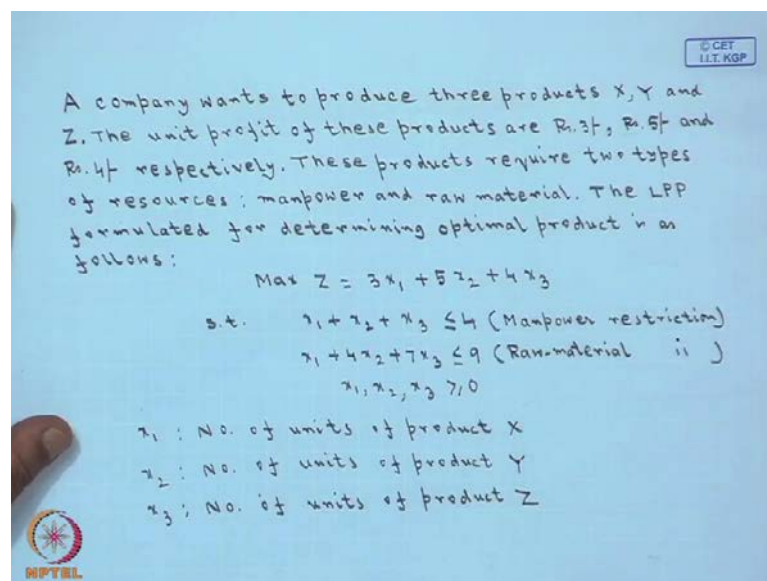 © CET
I.I.T. KGP
A company wants to produce three products X, Y and
Z. The unit profit of these products are Rs. 3/-, Rs. 5/- and
Rs. 4/- respectively. These products require two types
of resources: manpower and raw material. The LPP
formulated for determining optimal product is as
follows:
Max Z = 3x₁ + 5x₂ + 4x₃
s.t. x₁ + x₂ + x₃ ≤ 4 (Manpower restriction)
x₁ + 4x₂ + 7x₃ ≤ 9 (Raw-material ii )
x₁, x₂, x₃ ≥ 0
x₁ : No. of units of product X
x₂ : No. of units of product Y
x₃ : No. of units of product Z
NPTEL